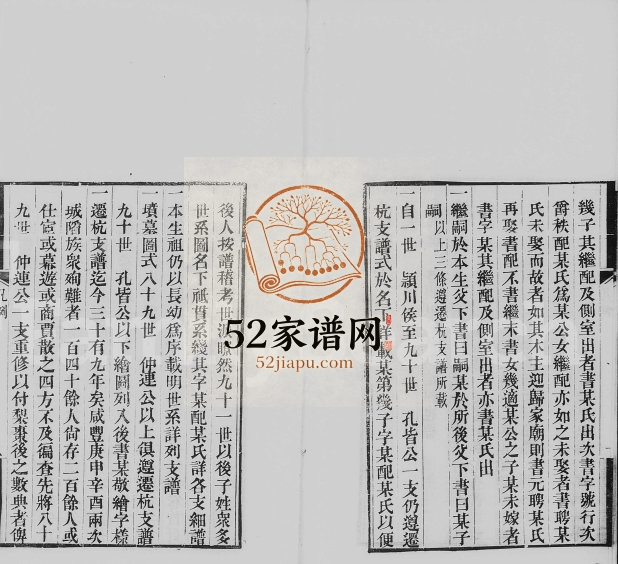 幾子其繼配及側室出者書某氏出次書字號行次
爵秩配某氏爲某公女繼配亦如之未娶者書聘某
氏未娶而故者如其木主迎歸家廟則書元聘某氏
再娶書配不書繼末書女幾適某公之子某未嫁者
書字某其繼配及側室出者亦書某氏出
一繼嗣於本生父下書曰嗣某於所後父下書曰某子
嗣以上三條遵遷杭支譜所載
自一世 潁川侯至九十世 孔皆公一支仍遵遷
杭支譜式於名下詳載某第幾子字某配某氏以便
後人按譜稽考世派瞭然九十一世以後子姓衆多
世系圖名下祗書系綫其字某配某氏詳各支細譜
一本生祖仍以長幼爲序載明世系詳列支譜
一墳墓圖式八十九世 仲連公以上俱遵遷杭支譜
九十世 孔皆公以下繪圖列入後書某敬繪字樣
一遷杭支譜迄今三十有九年矣咸豐庚申辛酉兩次
城陷族衆殉難者一百四十餘人尙存二百餘人或
仕宦或幕遊或商賈散之四方不及徧查先將八十
九世 仲連公一支重修以付棃棗後之數典者俾
凡例
52家谱网
52jiapu.com